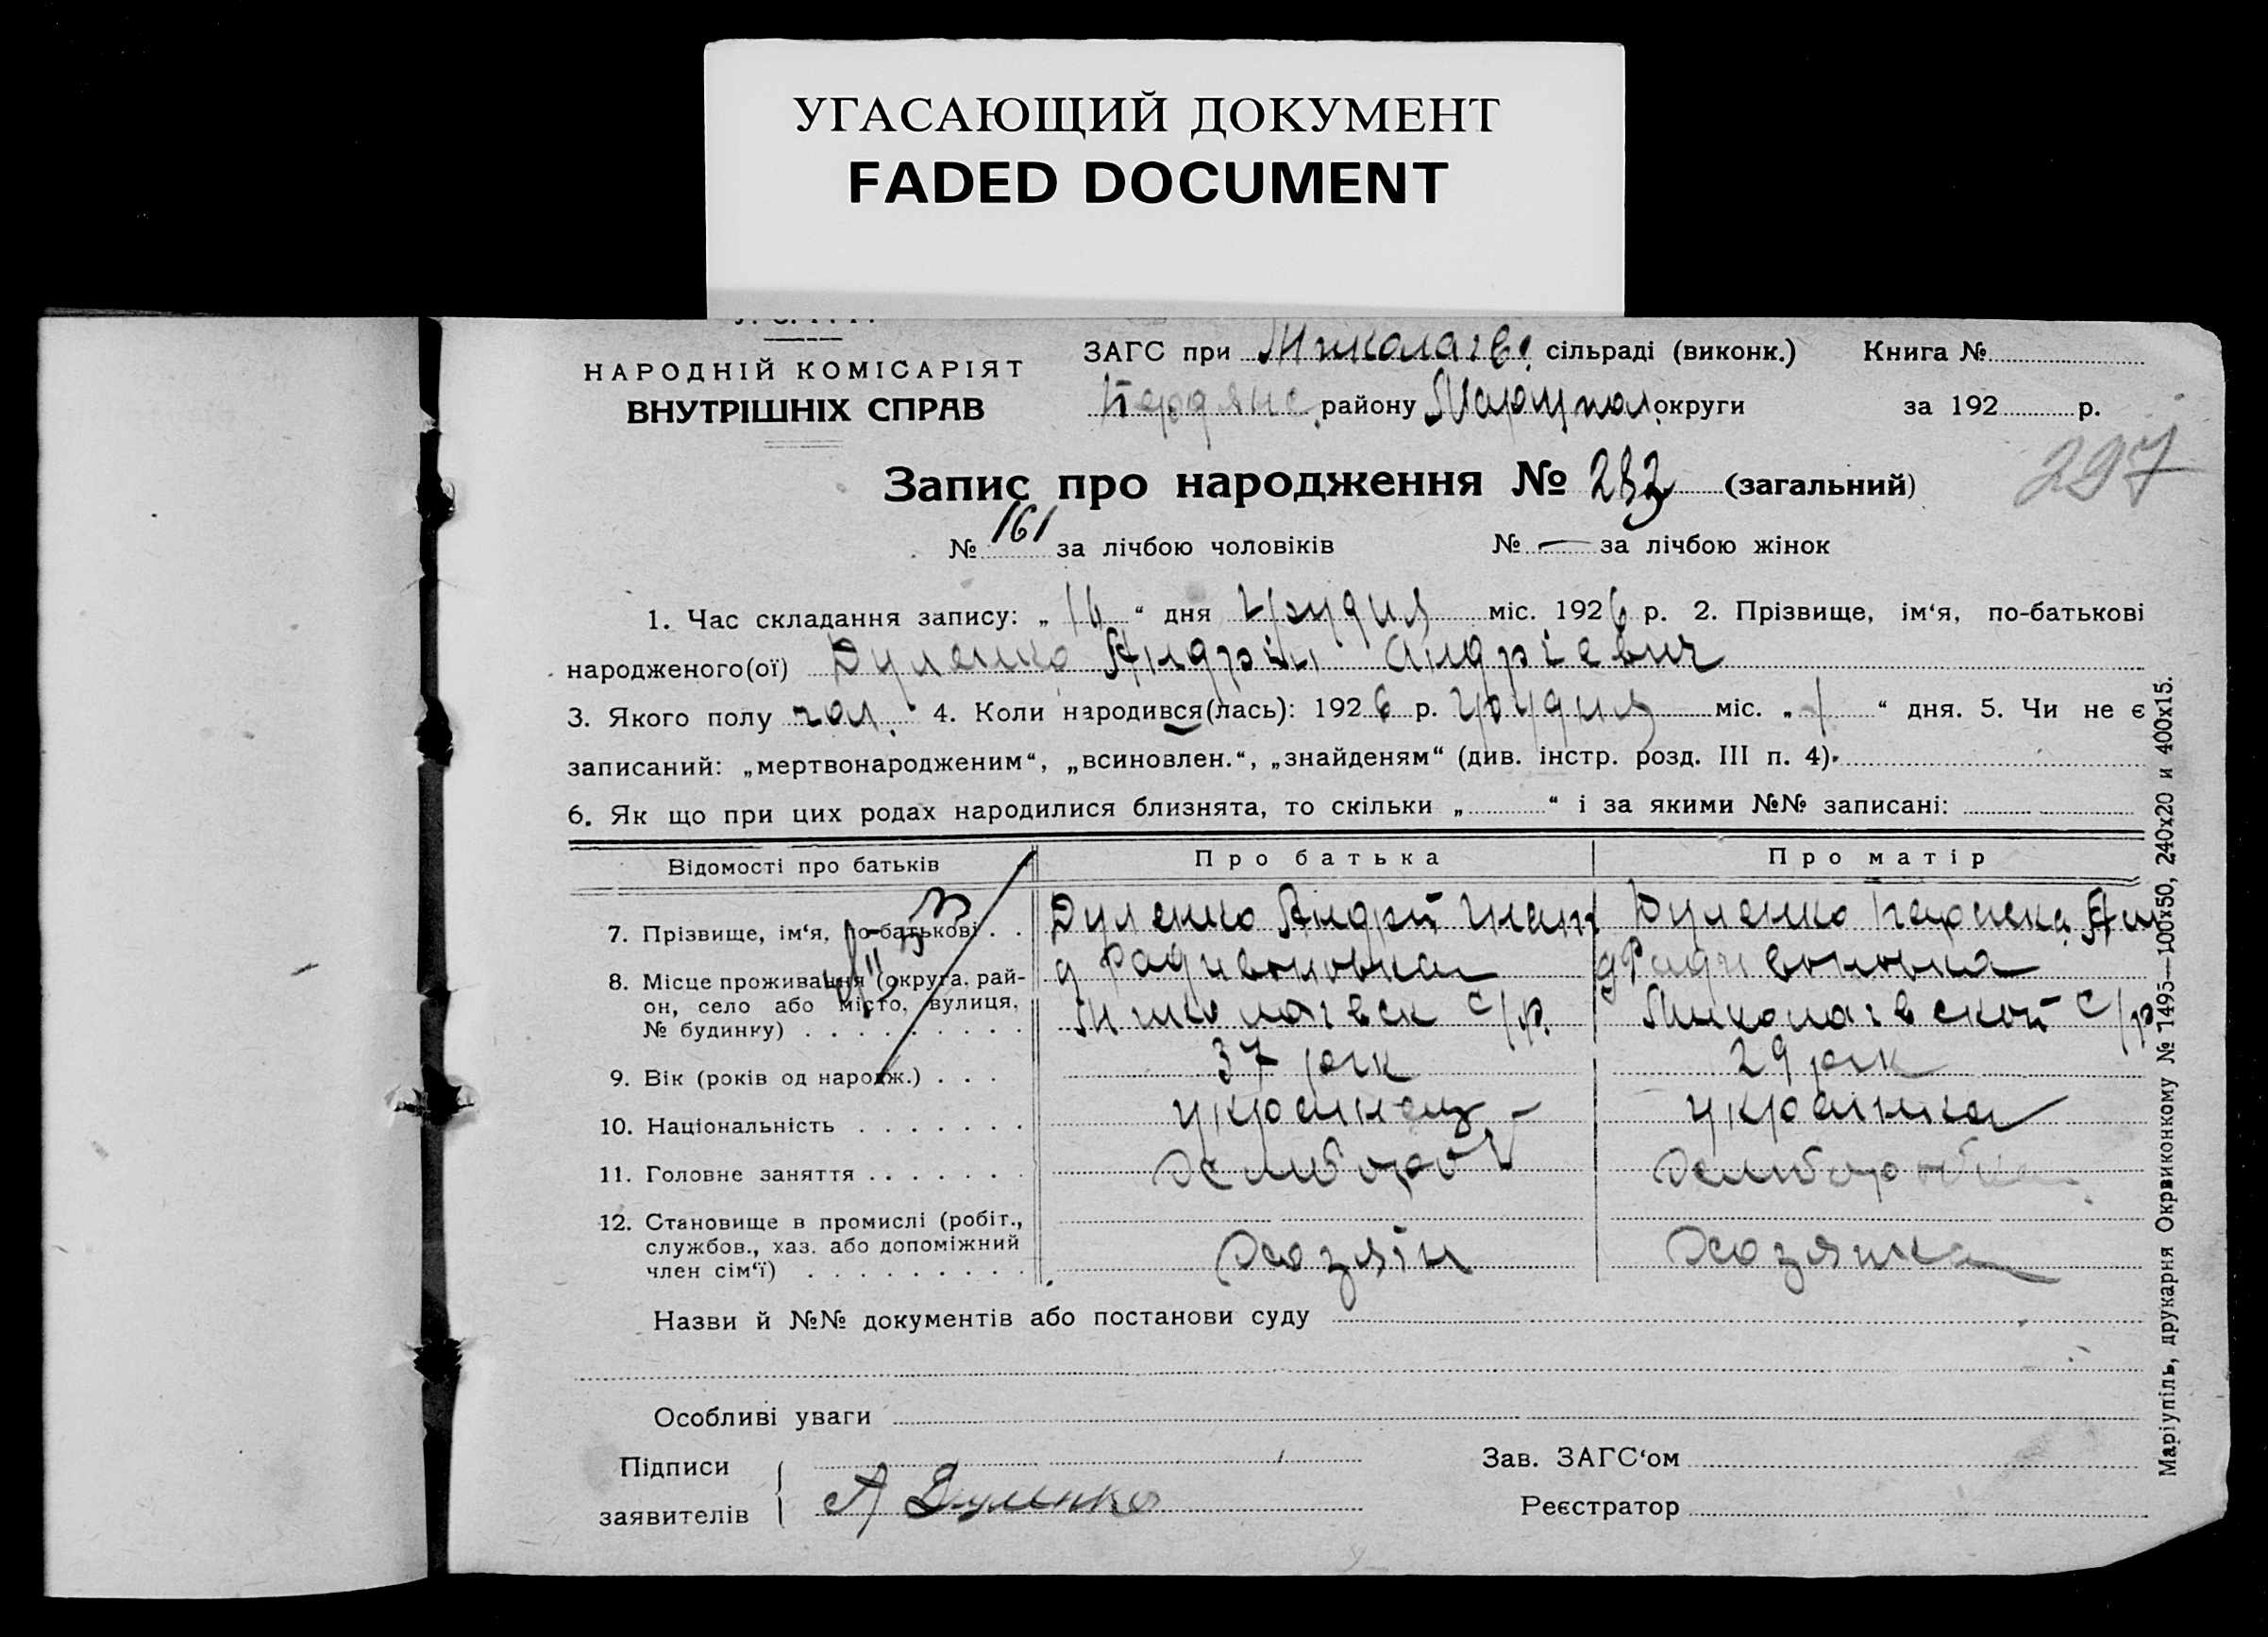 УГАСАЮЩИЙ ДОКУМЕНТ
FADED DOCUMENT
НАРОДНІЙ КОМІСАРІЯТ
ВНУТРІШНІХ СПРАВ
ЗАГС при Миколаїв. сільраді (виконк.) Книга №
Бердянс. району Маріупол округи за 192 р.
297
Запис про народження № 283 (загальний)
№ 161 за лічбою чоловіків № — за лічбою жінок
1. Час складання запису: „ 14 “ дня грудня міс. 1926 р. 2. Прізвище, ім‘я, по-батькові
народженого(ої) Дуленко Андрій Андрієвич
3. Якого полу чол. 4. Коли народився(лась): 1926 р. грудня міс. „ 1 “ дня. 5. Чи не є
записаний: „мертвонародженим“, „всиновлен.“, „знайденям“ (див. інстр. розд. III п. 4).
6. Як що при цих родах народилися близнята, то скільки „ “ і за якими №№ записані:
Відомості про батьків Про батька Про матір
7. Прізвище, ім‘я, по-батькові . . Дуленко Андрій Игнат Дуленко Параска
8. Місце проживання (округа, рай- д Радивоновка д Радивоновка
он, село або місто, вулиця, Миколаівск с/р. Миколаівской с/р
№ будинку) . . . . . . . . .
9. Вік (років од народж.) . . . 37 рік 29 рік
10. Національність . . . . . . . украінец украінка
11. Головне заняття . . . . . . . хлибороб хлиборобка
12. Становище в промислі (робіт.,
службов., хаз. або допоміжний хозяін хозяйка
член сім‘ї) . . . . . . . . .
Назви й №№ документів або постанови суду
Особливі уваги
Підписи Зав. ЗАГС‘ом
заявителів А Дуленко Реєстратор
Маріупіль, друкарня Окрвиконкому № 1495—100х50, 240х20 и 400х15.